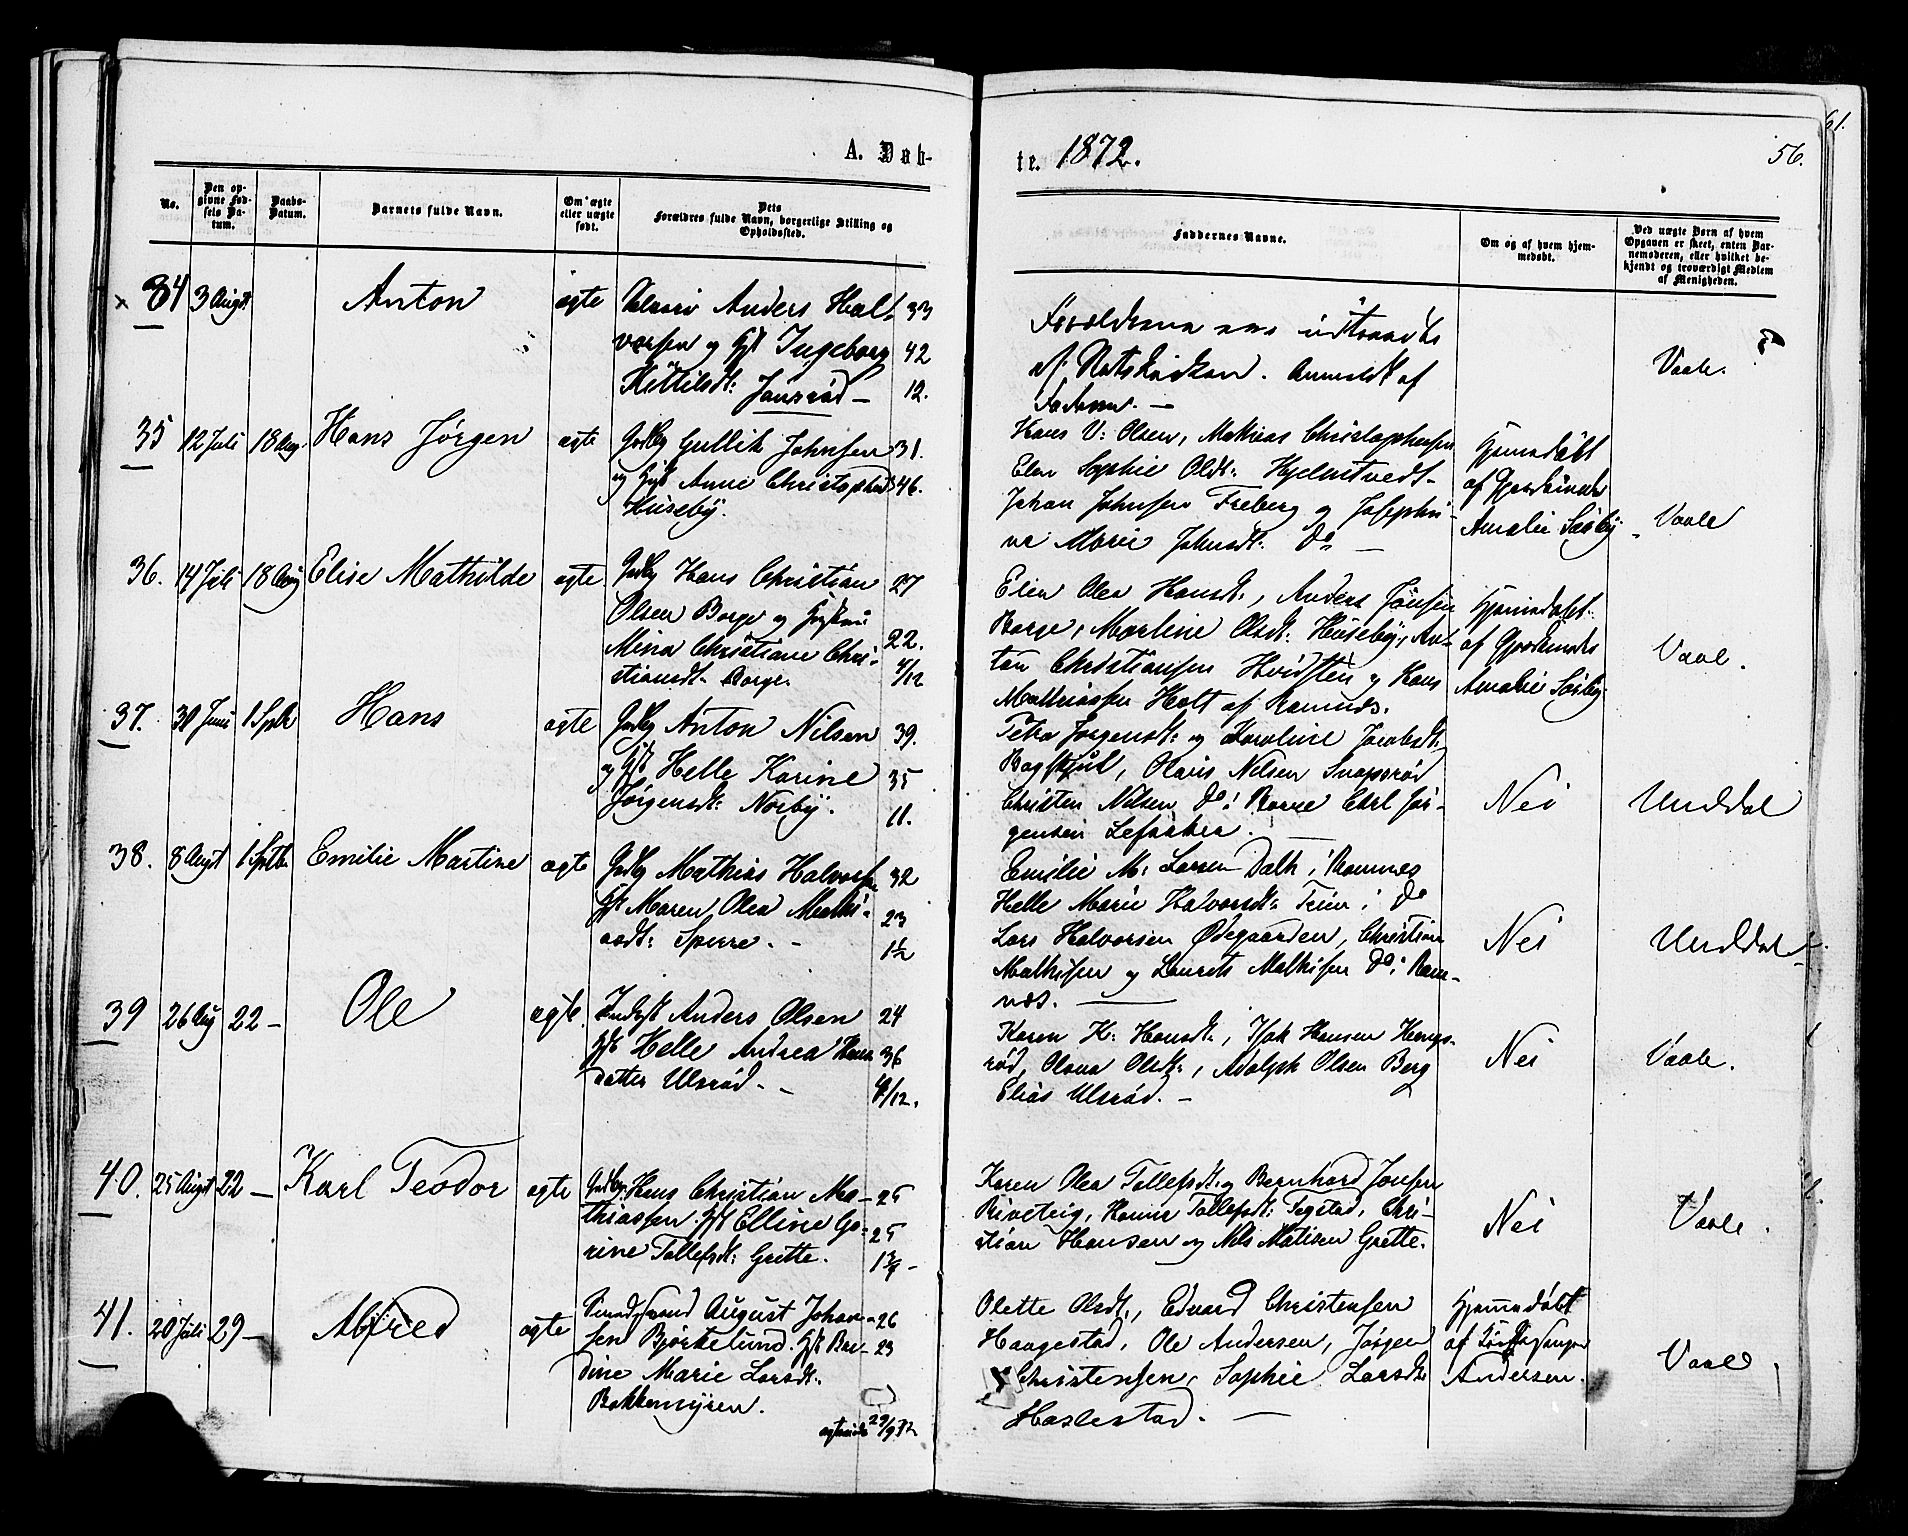 A. Døb-
te. 1872.
56.
61.
No.
Den op-
givne Fød-
sels Da-
tum.
Daabs-
Datum.
Barnets fulde Navn.
Om ægte
eller uægte
født.
Dets
Forældres fulde Navn, borgerlige Stilling og
Opholdssted.
Faddernes Navne.
Om og af hvem hjem-
medøbt.
Ved uægte Børn af hvem
Opgaven er skeet, enten Bar-
nemoderen, eller hvilket be-
kjendt og troværdigt Medlem
af Menigheden.
34 3 Augst Anton ægte Anders Hal- 33
vorsen og Hst Ingeborg 42
Kittilsdt: Jonsrød - 12.
Forældrene ere udtraadte
af Statskirken. Anmeldt af
Faderen. -
Vaale.
35 12 Juli 18 Aug. Hans Jørgen ægte Gdbr Gullik Johnsen 31.
og Hst Anne Christophsd 46.
Huseby.
Hans V: Olsen, Mathias Christophersen
Elen Sophie Olsdt: Hjelmtvedt-
Johan Johnsen Freberg og Josephi-
ne Marie Johnsdt: do -
Hjemmedøbt
af Gjordemoder
Amalie Søeby.
Vaale
36. 14 Juli 18 Aug Elise Mathilde ægte Gdbr Hans Christian 27
Olsen Borge og Hustru
Mina Christiane Chri- 22.
stiansdt. Borge. 4/12
Elen Olea Hansdt:, Anders Jonsen
Borge, Marline Olsdt: Huseby, An-
ton Christiansen Hvidsten og Hans
Mathiassen Holt af Ramnæs.
Hjemmedøbt
af Gjordemoder
Amalie Søeby.
Vaale.
37. 30 Juni 1 Sptr Hans ægte Gdbr Anton Nilsen 39.
og Hst Helle Karine 35
Jørgensdt: Nordby. 11.
Petra Jørgensdt: og Karoline Jacobsdt:
Olaus Nilsen Snapsrød
Christen Nilsen do: Borre Carl Jør-
gensen Lefsaker.
Nei
Unddal
38. 8 Augst 1 Sptbr Emilie Martine ægte Gdbr Mathias Halvorsen 32
Hst Maren Olea Mathi- 23
asdt: Sperre. - 1½
Emilie M: Larsen Dalh i Ramnes
Helle Marie Halvorsdt: i do
Lars Halvorsen Ødegaarden, Christian
Mathisen og Laurits Mathisen do i Ram-
næs.
Nei
Unddal
39 26 Aug 22 - Ole ægte. Inderst Anders Olsen 24
Hst Helle Andrea Hans 36
datter Ulsrød. - 4/12.
Karen H: Hansdt:, Isak Hansen Hengs-
rød, Olava Olsdt:, Adolph Olsen Berg
Elias Ulsrød. -
Nei
Vaale.
40. 25 Augst 22 - Karl Teodor ægte Gdbr: Hans Christian Ma- 25
thiassen. Hst Elline Ga- 25
rine Tollefsdt: Grette. 1¾ -
Karen Olea Tollefsdt: og Bernhard Jonsen
Riveteig, Hanne Tollefsdt: Tegstad, Chri-
stian Hansen og Nils Matisen Grette.
Nei
Vaale.
41. 20 Juli 29 - Alfred ægte August Johan- 26
sen Bjørkelund. Hst Ber- 23
dine Marie Larsdt:
Bakkemyren.
29/9 72
Olette Olsdt:, Edvard Christensen
Haugestad, Ole Andersen, Jørgen
Christensen, Sophie Larsdt:
Haslestad. -
Hjemmedøbt
af Kirkesanger
Andersen.
Vaale